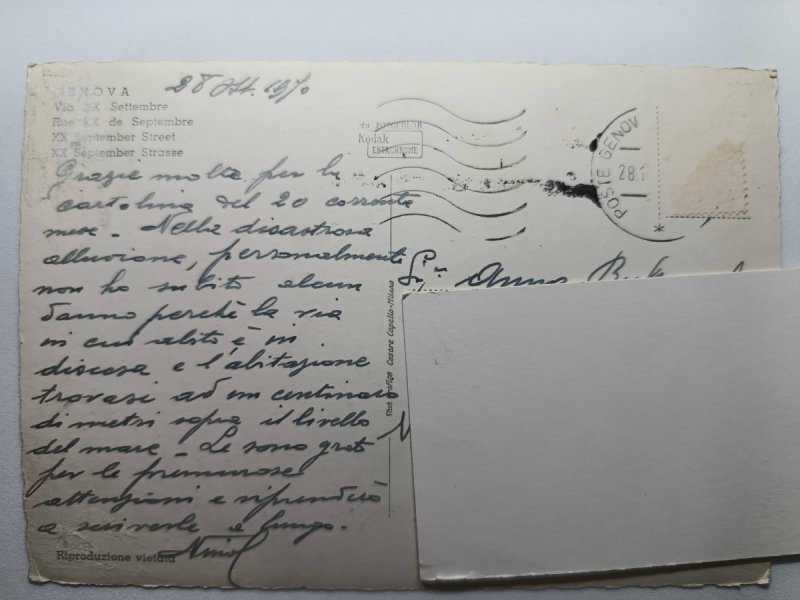 28 Ott. 1970
GENOVA
Via XX Settembre
Rue XX de Septembre
XX September Street
XX September Strasse
Grazie molte per la
cartolina del 20 corrente
mese. Nella disastrosa
alluvione, personalmente
non ho subito alcun
danno perchè la via
in cui abito è in
discesa e l'abitazione
trovasi ad un centinaio
di metri sopra il livello
del mare. Le sono grato
per le premurose
attenzioni e riprenderò
a scriverle a lungo.
Riproduzione vietata
FOTOCOLOR
Kodak
EKTACHROME
Stab. Grafico Cesare Capello - Milano
POSTE GENOV
28.1
Anna